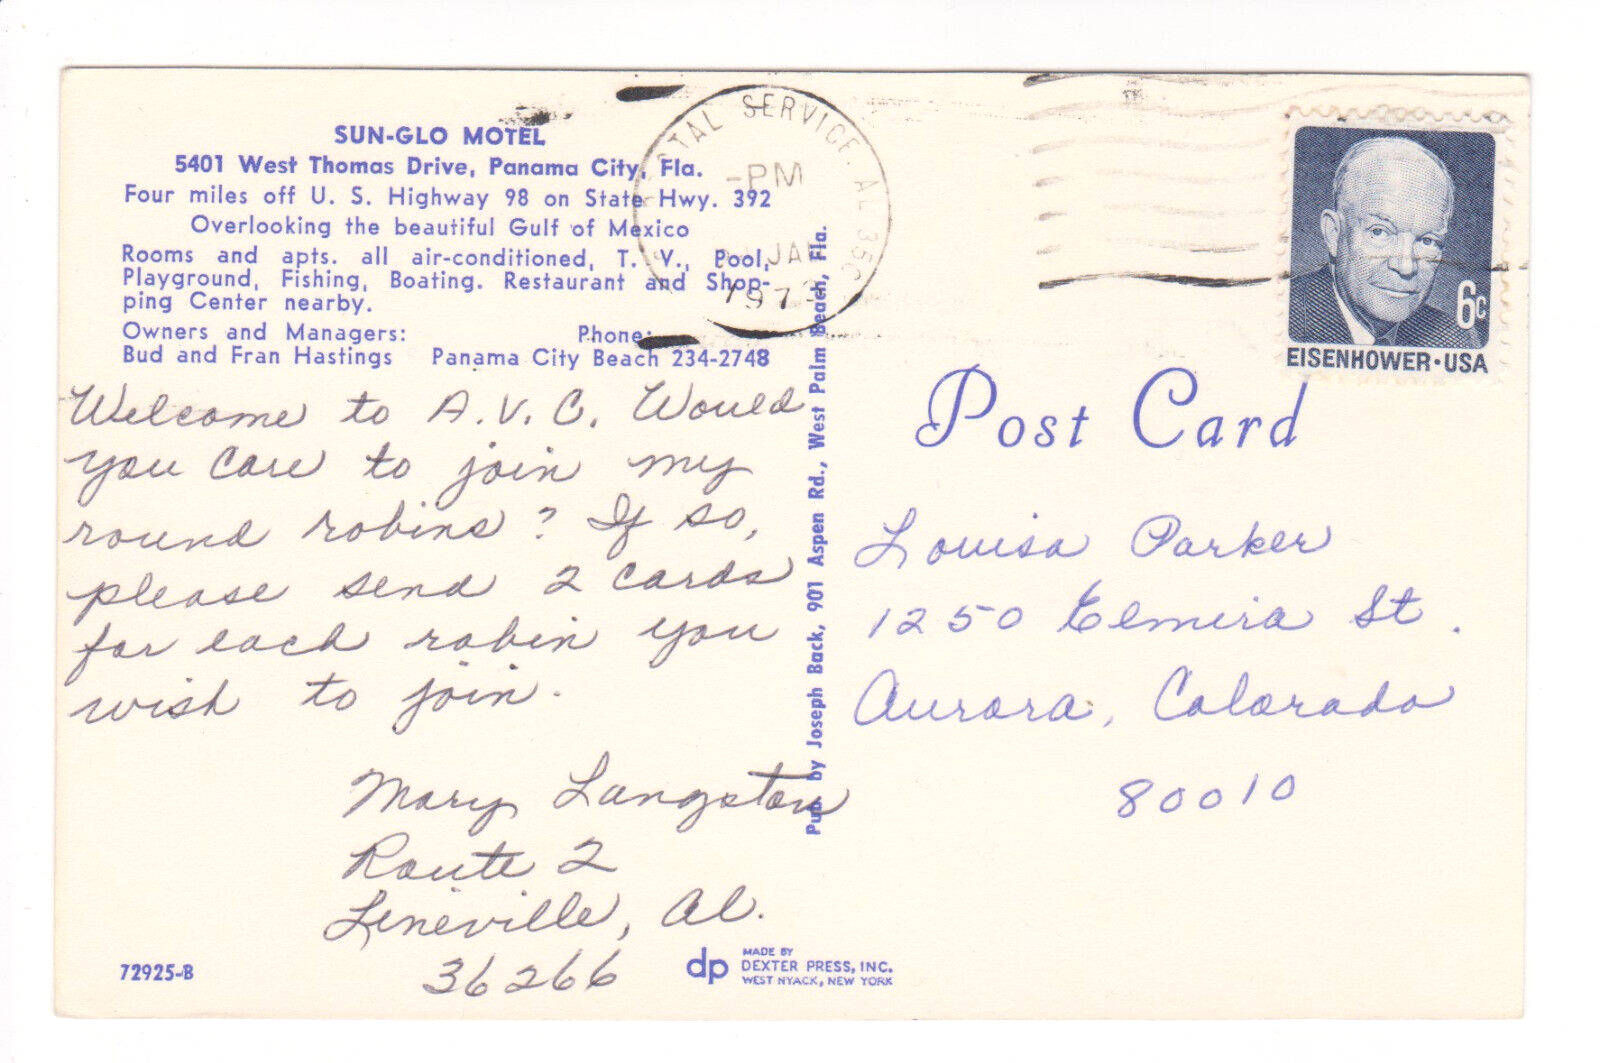 SUN-GLO MOTEL
5401 West Thomas Drive, Panama City, Fla.
Four miles off U. S. Highway 98 on State Hwy. 392
Overlooking the beautiful Gulf of Mexico
Rooms and apts. all air-conditioned, T. V., Pool,
Playground, Fishing, Boating. Restaurant and Shop-
ping Center nearby.
Owners and Managers: Phone:
Bud and Fran Hastings Panama City Beach 234-2748
Welcome to A.V.C. Would
you care to join my
round robins? If so,
please send 2 cards
for each robin you
wish to join.
Mary Langston
Route 2
Lineville, Al.
36266
72925-B
dp
MADE BY
DEXTER PRESS, INC.
WEST NYACK, NEW YORK
Pub. by Joseph Back, 901 Aspen Rd., West Palm Beach, Fla.
SERVICE, AL
PM
JAN
EISENHOWER·USA
6c
Post Card
Louisa Parker
1250 Elmira St.
Aurora, Colorado
80010